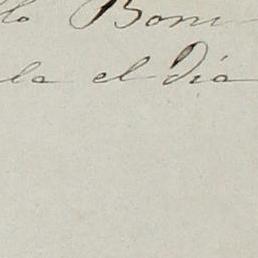 lo Boni
la el dia